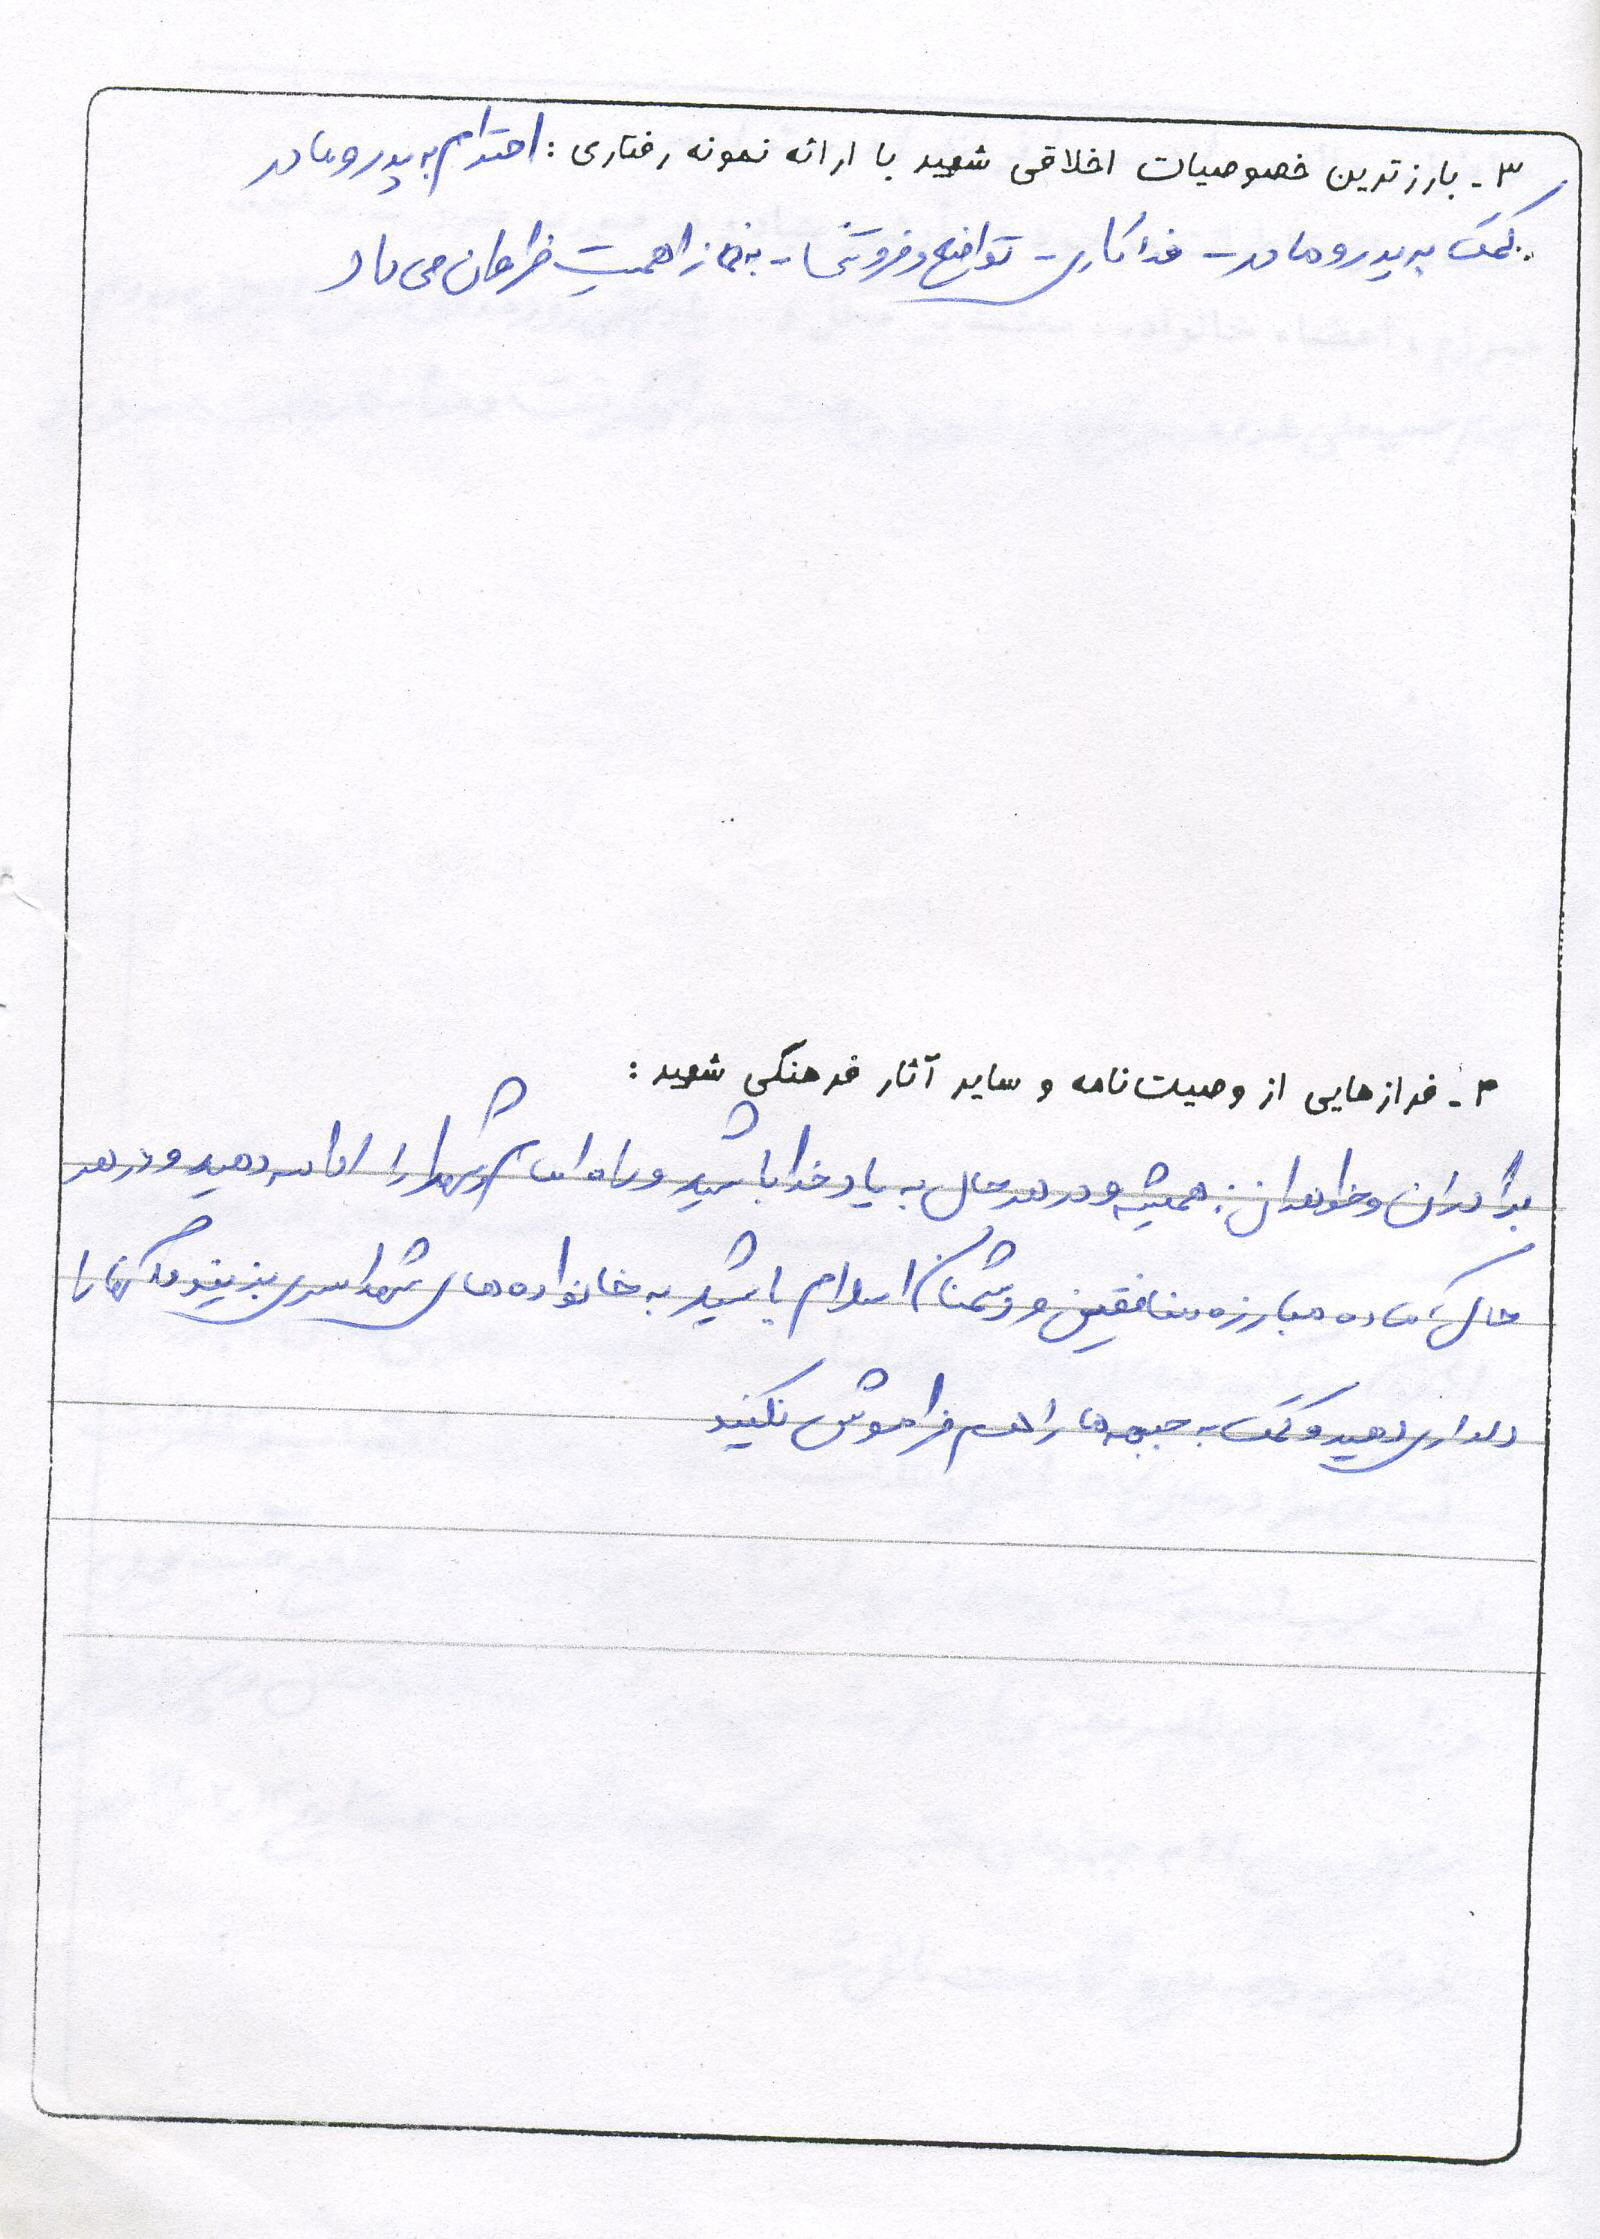 ۳- بارزترین خصوصیات اخلاقی شهید با ارائه نمونه رفتاری : احترام به پدر و مادر
کمک به پدر و مادر - فداکاری - تواضع و فروتنی - به نماز اهمیت فراوان می داد
۴- فرازهایی از وصیت‌نامه و سایر آثار فرهنگی شهید :
برادران و خواهران : همیشه و در هر حال به یاد خدا باشید و راه امام و شهدا را ادامه دهید و در هر
حال آماده مبارزه منافقین و دشمنان اسلام باشید به خانواده های شهدا سری بزنید و آنها را
دلداری دهید و کمک به جبهه ها را هم فراموش نکنید